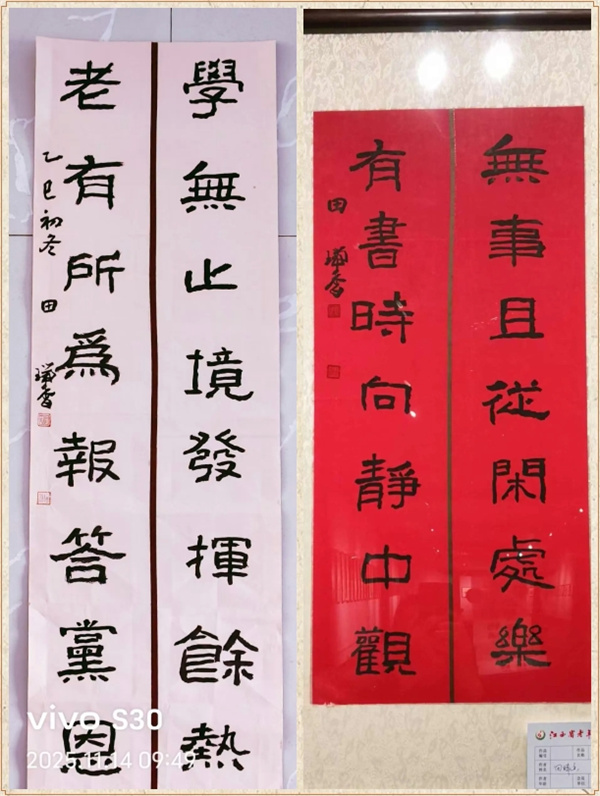 學無止境發揮餘熱
老有所爲報答黨恩
乙巳初冬 田瑞香
無事且從閑處樂
有書時向靜中觀
田瑞香
vivo S30
2025.11.14 09:49
江西省老年